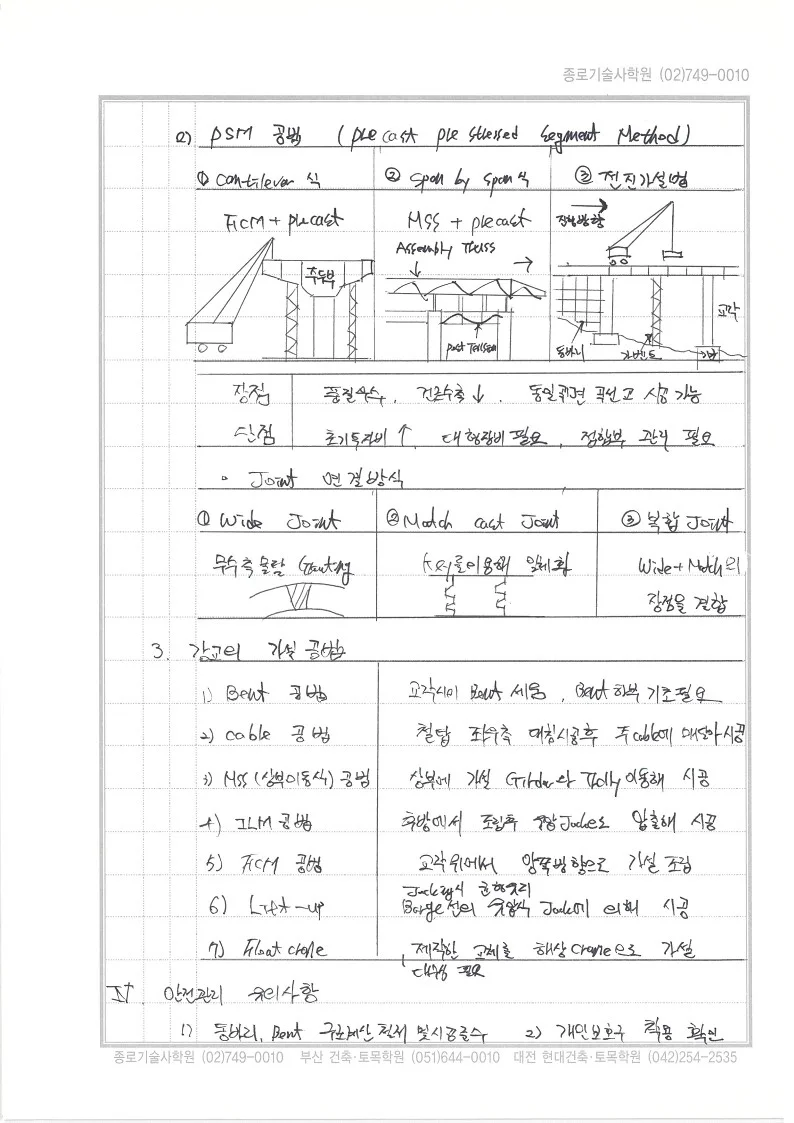 종로기술사학원 (02)749-0010
2) PSM 공법 (pre cast pre stressed Segment Method)
① Cantilever 식 ② Span by Span 식 ③ 전진가설법
FCM + precast MSS + precast 진행방향
Assembly Truss
주두부
교각
post Tension 동바리 가벤트 기초
장점 품질우수, 건조수축↓, 동일 곡선교 시공 가능
단점 초기투자비↑, 대형장비 필요, 접합부 관리 필요
◦ Joint 연결방식
① Wide Joint ② Match cast Joint ③ 복합 Joint
무수축 몰탈 Grouting Key를 이용해 일체화 Wide + Match의
장점을 결합
3. 강교의 가설 공법
1) Bent 공법 교각사이 Bent 세움, Bent 하부 기초필요
2) cable 공법 철탑 좌우측 대칭시공후 주cable에 매달아 시공
3) MSS (상부이동식) 공법 상부에 가설 Girder와 Trolly 이동해 시공
4) ILM 공법 후방에서 조립후 Jack으로 압출해 시공
5) FCM 공법 교각위에서 양쪽방향으로 가설 조립
6) Lift-up Barge선의 유압식 Jack에 의해 시공
7) Float crane 제작한 교체를 해상Crane으로 가설
대규모 필요
Ⅳ. 안전관리 유의사항
1) 동바리, Bent 구조계산 철저 및 시공준수 2) 개인보호구 착용 확인
종로기술사학원 (02)749-0010 부산 건축·토목학원 (051)644-0010 대전 현대건축·토목학원 (042)254-2535